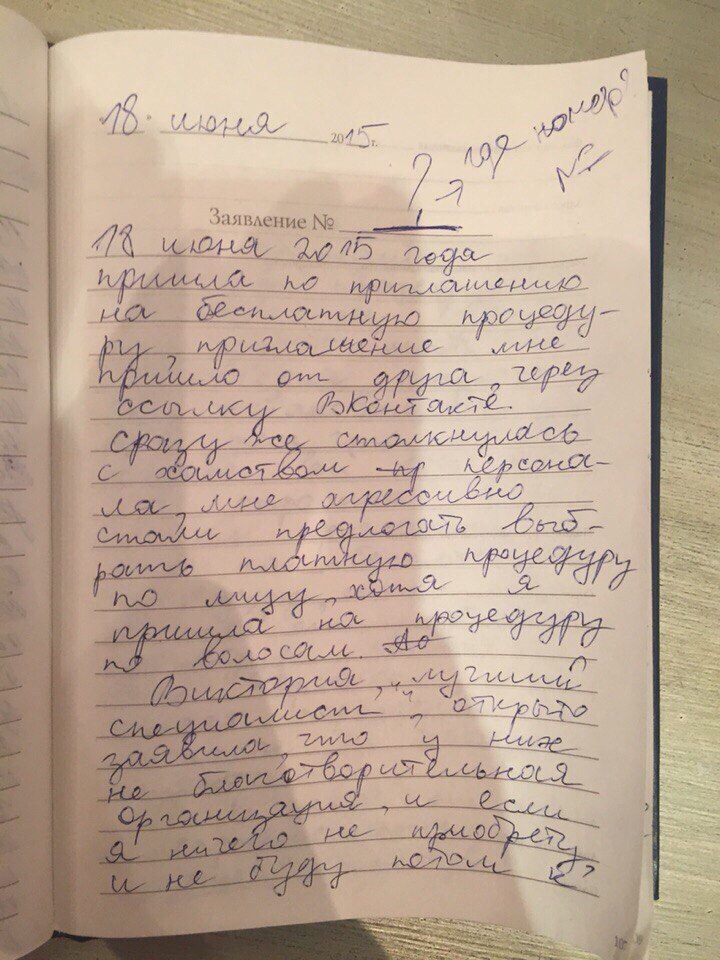 18 июня 2015 г.
? → где номер?
№
Заявление №
18 июня 2015 года
пришла по приглашению
на бесплатную процеду-
ру, приглашение мне
пришло от друга, через
ссылку ВКонтакте.
Сразу же столкнулась
с хамством пр персона-
ла, мне агрессивно
стали предлогать выб-
рать платную процедуру
по лицу, хотя я
пришла на процедуру
по волосам. Ад
Виктория, „лучший
специалист", открыто
заявила, что у них
не благотворительная
организация, и если
я ничего не приобрету
и не буду потом к